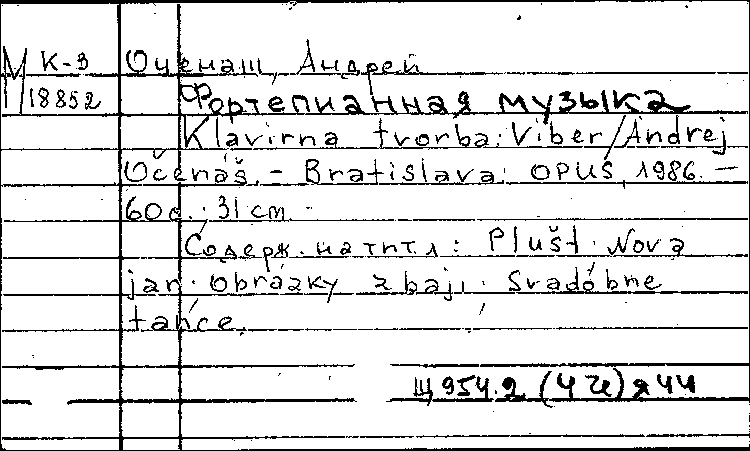 М К-3 Оченаш, Андрей
18852 Фортепианная музыка
Klavirna tvorba: Viber/Andrej
Očenáš. – Bratislava: OPUS, 1986. –
60 с.; 31 cm.
Содерж. на тит. л: Plušt. Nova
jar. Obrázky z baji. Svadóbne
tańce.
Щ954.2 (4 Че) я 44